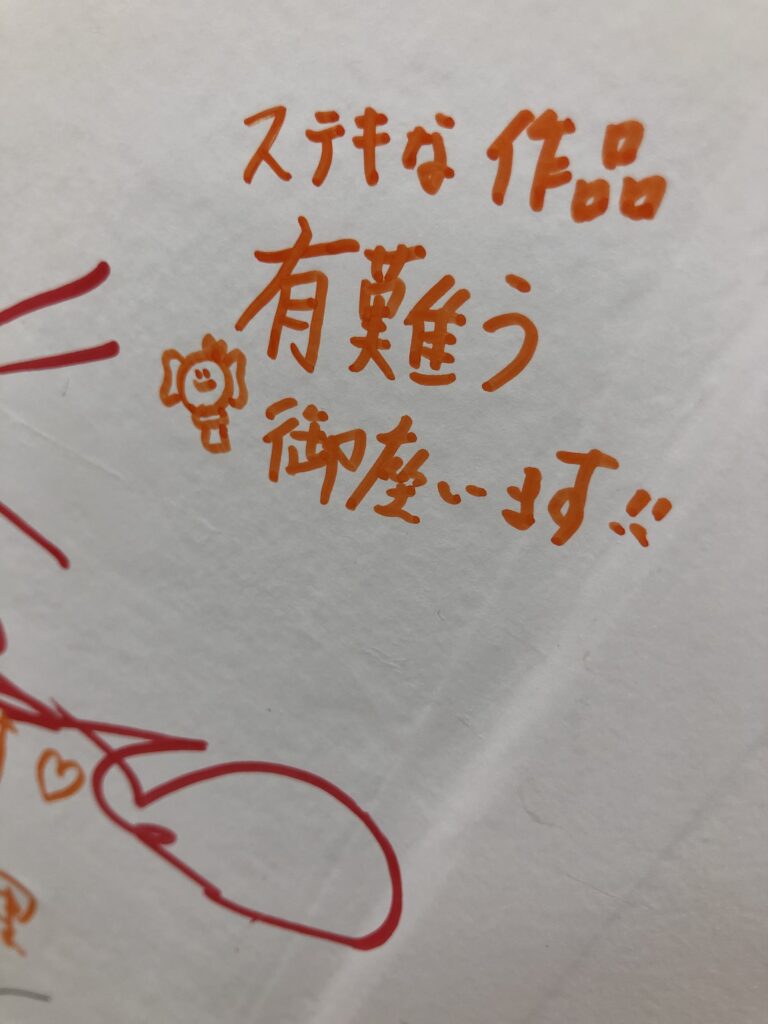 ステキな作品
有難う
御座います!!